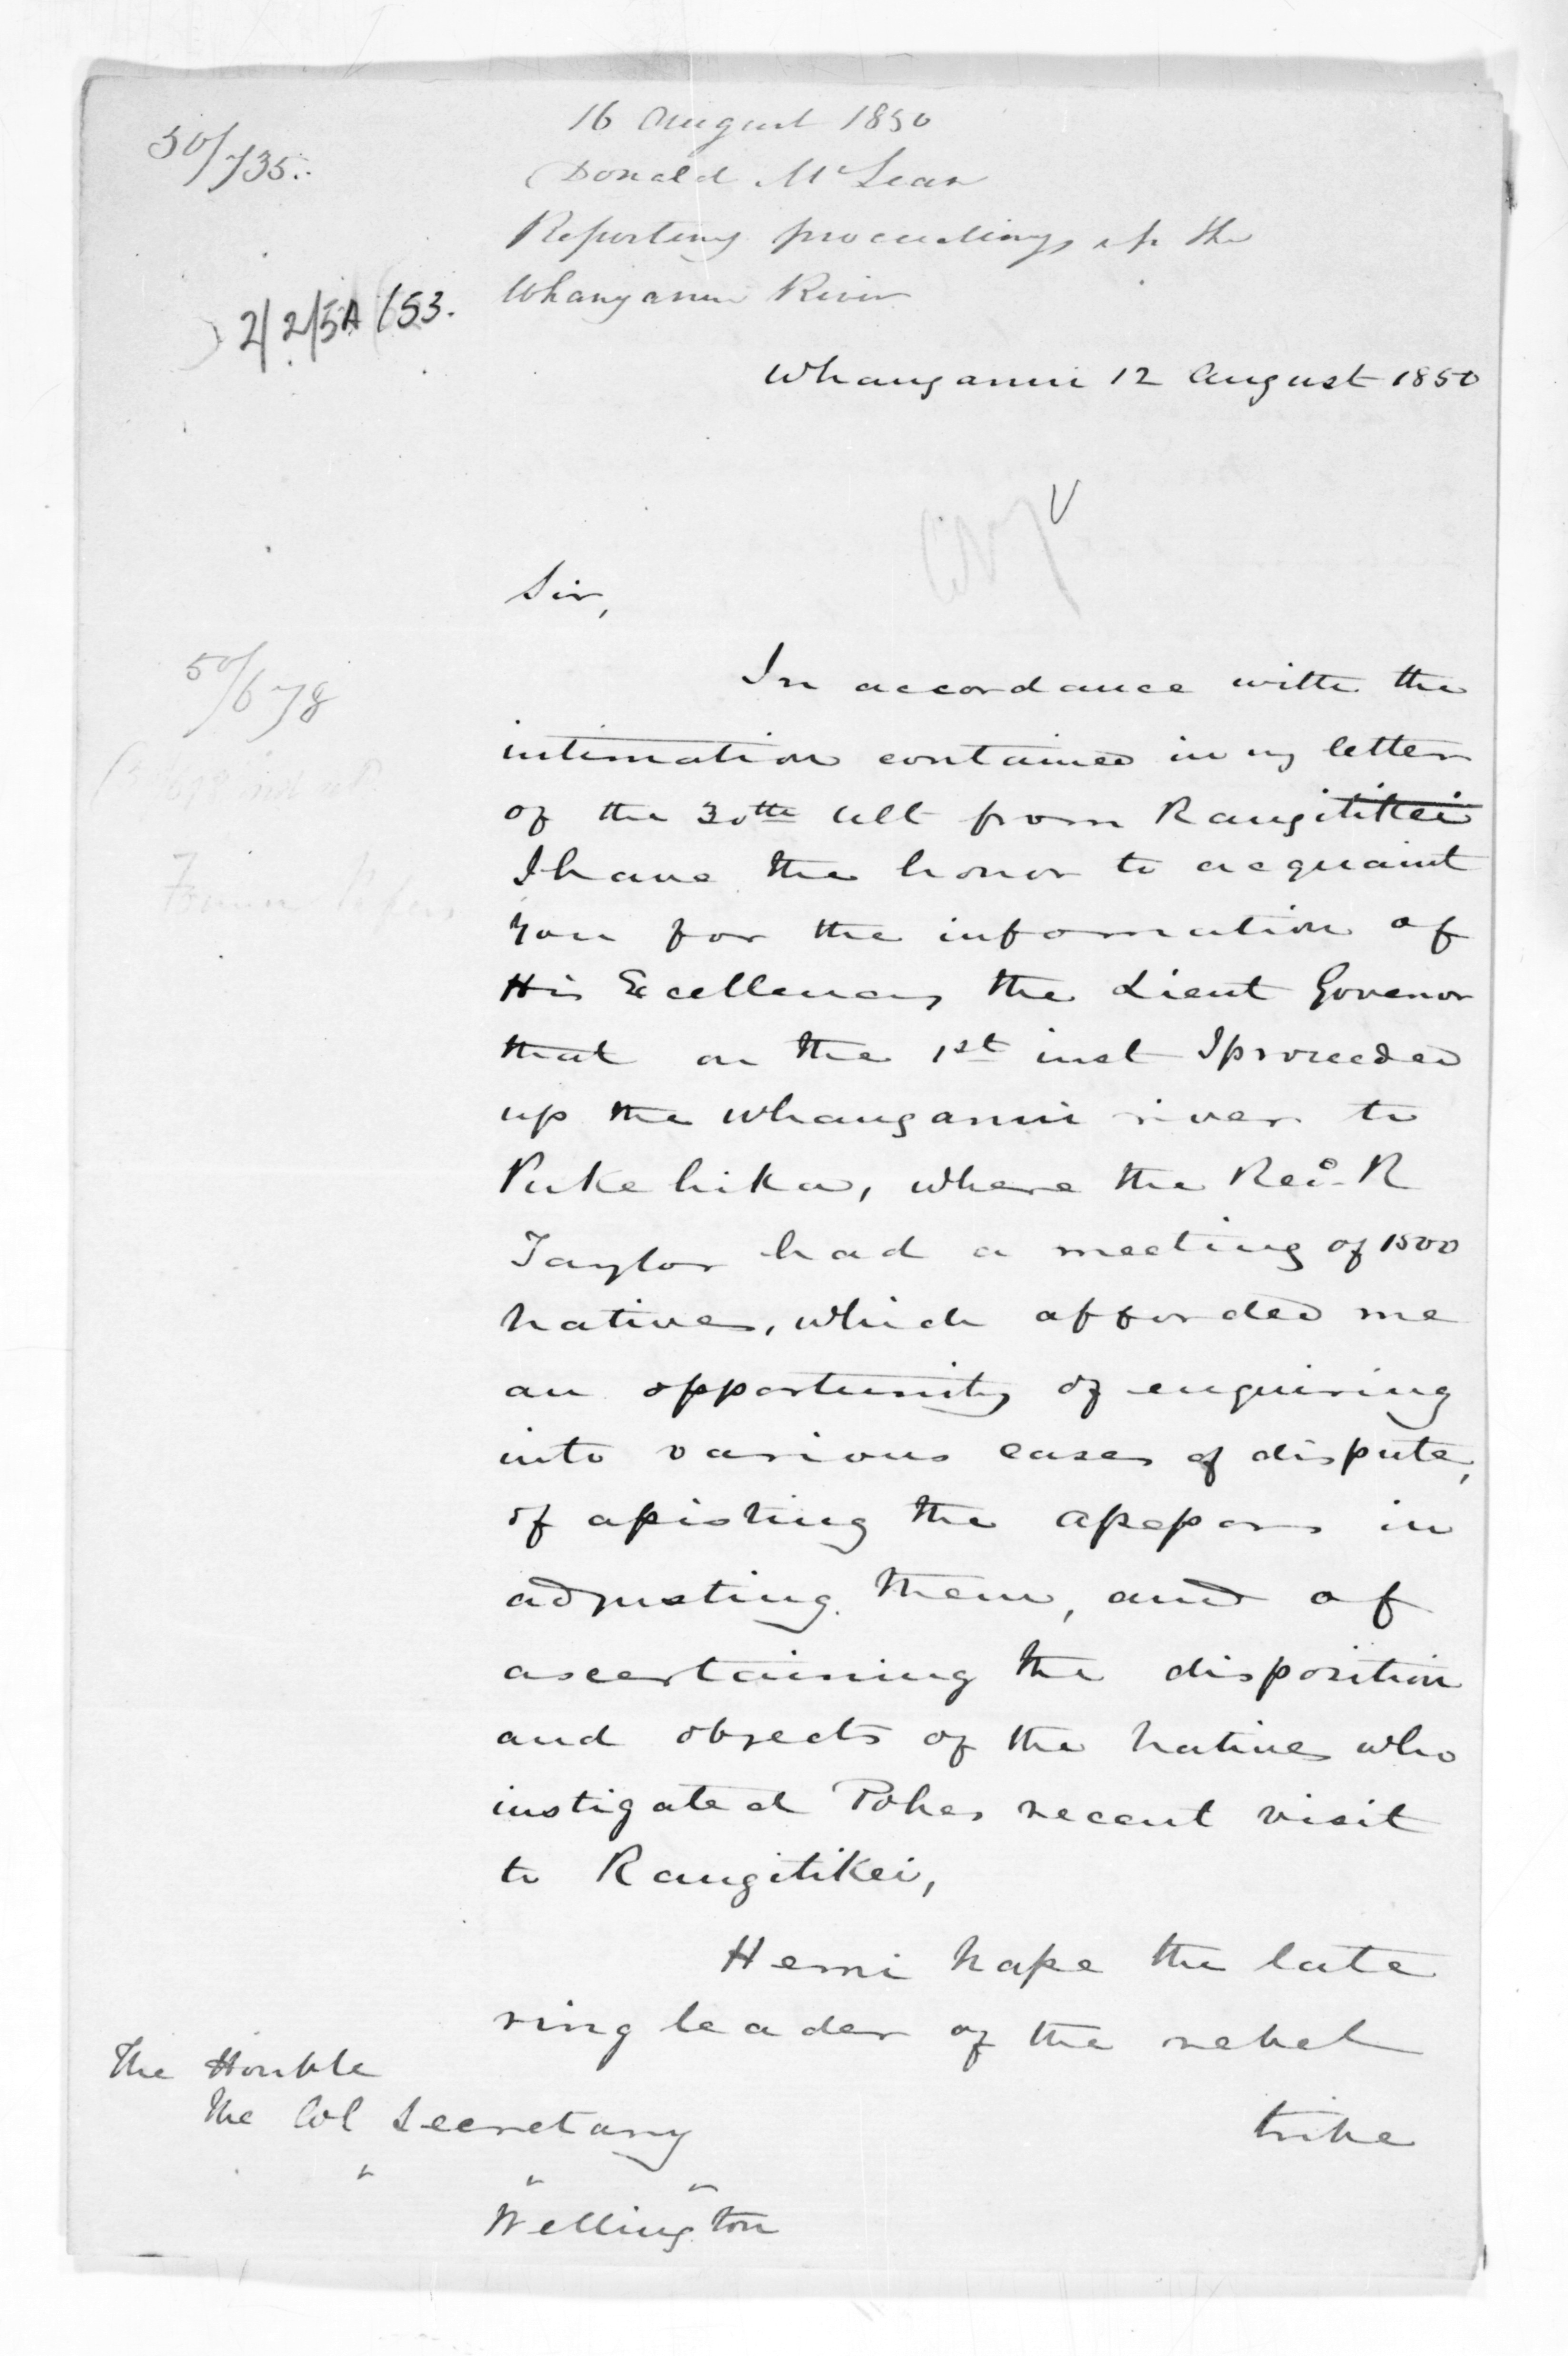 50/735.
16 August 1850
Donald McLean
Reporting proceedings up the
Whanganui River
2/2/5A/53.
Whanganui 12 August 1850
Copy
Sir,
50/678
In accordance with the
intimation contained in my letter
of the 30th Ult from Rangitikei
I have the honor to acquaint
you for the information of
His Excellency the Lieut Govenor
that on the 1st inst I proceeded
up the Whanganui river to
Pukehika, where the Revd. R
Taylor had a meeting of 1500
natives, which afforded me
an opportunity of enquiring
into various cases of dispute,
of assisting the assessors in
adjusting them, and of
ascertaining the disposition
and objects of the natives who
instigated Pohes recent visit
to Rangitikei,
Hemi Nape the late
ring leader of the rebel
tribe
The Honble
The Col Secretary
" " "
Wellington